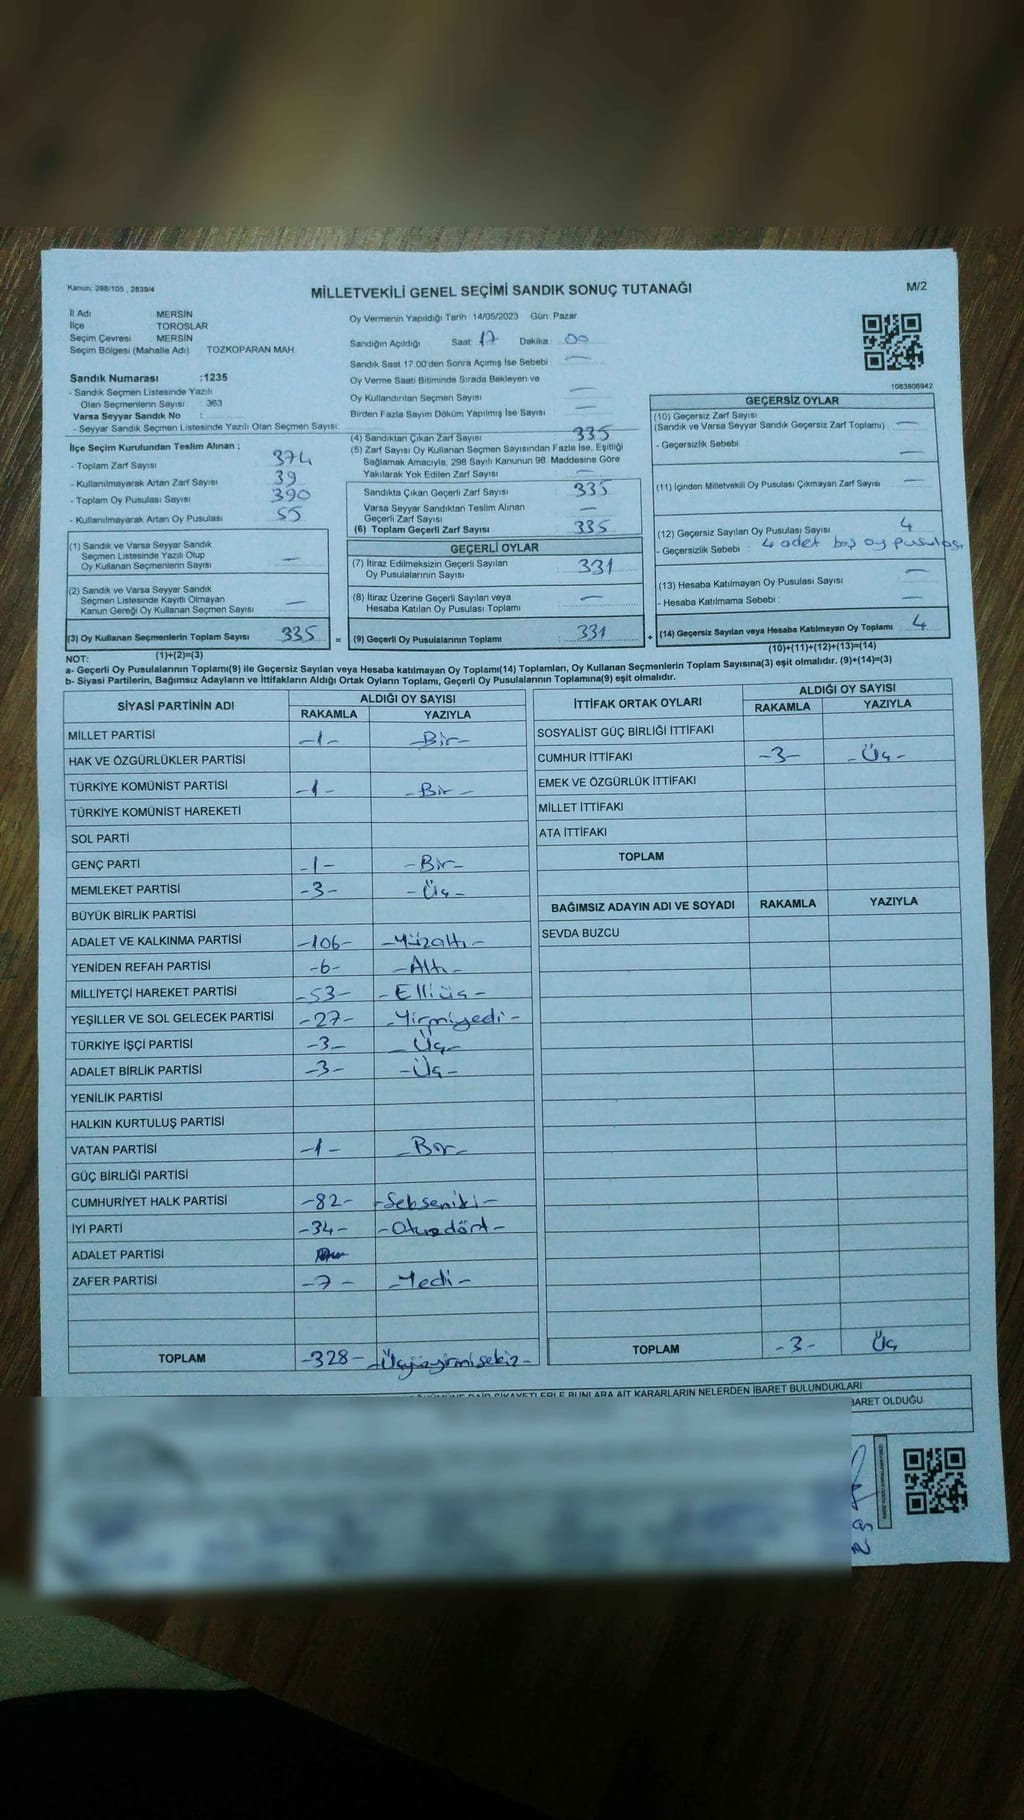 Kanun; 298/105 , 2839/4
MİLLETVEKİLİ GENEL SEÇİMİ SANDIK SONUÇ TUTANAĞI
M/2
İl Adı MERSİN
İlçe TOROSLAR
Seçim Çevresi MERSİN
Seçim Bölgesi (Mahalle Adı) TOZKOPARAN MAH.
Sandık Numarası :1235
- Sandık Seçmen Listesinde Yazılı
Olan Seçmenlerin Sayısı : 363
Varsa Seyyar Sandık No :
- Seyyar Sandık Seçmen Listesinde Yazılı Olan Seçmen Sayısı:
İlçe Seçim Kurulundan Teslim Alınan ;
- Toplam Zarf Sayısı 374
- Kullanılmayarak Artan Zarf Sayısı 39
- Toplam Oy Pusulası Sayısı 390
- Kullanılmayarak Artan Oy Pusulası 55
(1) Sandık ve Varsa Seyyar Sandık
Seçmen Listesinde Yazılı Olup
Oy Kullanan Seçmenlerin Sayısı —
(2) Sandık ve Varsa Seyyar Sandık
Seçmen Listesinde Kayıtlı Olmayan
Kanun Gereği Oy Kullanan Seçmen Sayısı —
(3) Oy Kullanan Seçmenlerin Toplam Sayısı 335 =
(1)+(2)=(3)
Oy Vermenin Yapıldığı Tarih :14/05/2023 Gün: Pazar
Sandığın Açıldığı Saat: 17 Dakika 00
Sandık Saat 17:00'den Sonra Açımış İse Sebebi —
Oy Verme Saati Bitiminde Sırada Bekleyen ve
Oy Kullandırılan Seçmen Sayısı —
Birden Fazla Sayım Döküm Yapılmış İse Sayısı —
(4) Sandıktan Çıkan Zarf Sayısı 335
(5) Zarf Sayısı Oy Kullanan Seçmen Sayısından Fazla İse, Eşitliği
Sağlamak Amacıyla, 298 Sayılı Kanunun 98. Maddesine Göre
Yakılarak Yok Edilen Zarf Sayısı —
Sandıkta Çıkan Geçerli Zarf Sayısı 335
Varsa Seyyar Sandıktan Teslim Alınan
Geçerli Zarf Sayısı —
(6) Toplam Geçerli Zarf Sayısı 335
GEÇERLİ OYLAR
(7) İtiraz Edilmeksizin Geçerli Sayılan
Oy Pusulalarının Sayısı 331
(8) İtiraz Üzerine Geçerli Sayılan veya
Hesaba Katılan Oy Pusulası Toplamı —
(9) Geçerli Oy Pusulalarının Toplamı 331 +
1083606942
GEÇERSİZ OYLAR
(10) Geçersiz Zarf Sayısı
(Sandık ve Varsa Seyyar Sandık Geçersiz Zarf Toplamı) —
- Geçersizlik Sebebi : —
(11) İçinden Milletvekili Oy Pusulası Çıkmayan Zarf Sayısı —
(12) Geçersiz Sayılan Oy Pusulası Sayısı 4
- Geçersizlik Sebebi : 4 adet boş oy pusulası
(13) Hesaba Katılmayan Oy Pusulası Sayısı —
- Hesaba Katılmama Sebebi : —
(14) Geçersiz Sayılan veya Hesaba Katılmayan Oy Toplamı 4
(10)+(11)+(12)+(13)=(14)
NOT:
a- Geçerli Oy Pusulalarının Toplamı(9) ile Geçersiz Sayılan veya Hesaba katılmayan Oy Toplamı(14) Toplamları, Oy Kullanan Seçmenlerin Toplam Sayısına(3) eşit olmalıdır. (9)+(14)=(3)
b- Siyasi Partilerin, Bağımsız Adayların ve İttifakların Aldığı Ortak Oyların Toplamı, Geçerli Oy Pusulalarının Toplamına(9) eşit olmalıdır.
SİYASİ PARTİNİN ADI ALDIĞI OY SAYISI
RAKAMLA YAZIYLA
MİLLET PARTİSİ -1- -Bir-
HAK VE ÖZGÜRLÜKLER PARTİSİ
TÜRKİYE KOMÜNİST PARTİSİ -1- -Bir-
TÜRKİYE KOMÜNİST HAREKETİ
SOL PARTİ
GENÇ PARTİ -1- -Bir-
MEMLEKET PARTİSİ -3- -Üç-
BÜYÜK BİRLİK PARTİSİ
ADALET VE KALKINMA PARTİSİ -106- -Yüzaltı-
YENİDEN REFAH PARTİSİ -6- -Altı-
MİLLİYETÇİ HAREKET PARTİSİ -53- -Elliüç-
YEŞİLLER VE SOL GELECEK PARTİSİ -27- -Yirmiyedi-
TÜRKİYE İŞÇİ PARTİSİ -3- -Üç-
ADALET BİRLİK PARTİSİ -3- -Üç-
YENİLİK PARTİSİ
HALKIN KURTULUŞ PARTİSİ
VATAN PARTİSİ -1- -Bir-
GÜÇ BİRLİĞİ PARTİSİ
CUMHURİYET HALK PARTİSİ -82- -Sekseniki-
İYİ PARTİ -34- -Otuzdört-
ADALET PARTİSİ
ZAFER PARTİSİ -7- -Yedi-
TOPLAM -328- -Üçyüzyirmisekiz-
İTTİFAK ORTAK OYLARI ALDIĞI OY SAYISI
RAKAMLA YAZIYLA
SOSYALİST GÜÇ BİRLİĞİ İTTİFAKI
CUMHUR İTTİFAKI -3- -Üç-
EMEK VE ÖZGÜRLÜK İTTİFAKI
MİLLET İTTİFAKI
ATA İTTİFAKI
TOPLAM
BAĞIMSIZ ADAYIN ADI VE SOYADI RAKAMLA YAZIYLA
SEVDA BUZCU
TOPLAM -3- Üç
DAİR ŞİKAYETLERLE BUNLARA AİT KARARLARIN NELERDEN İBARET BULUNDUKLARI
İBARET OLDUĞU